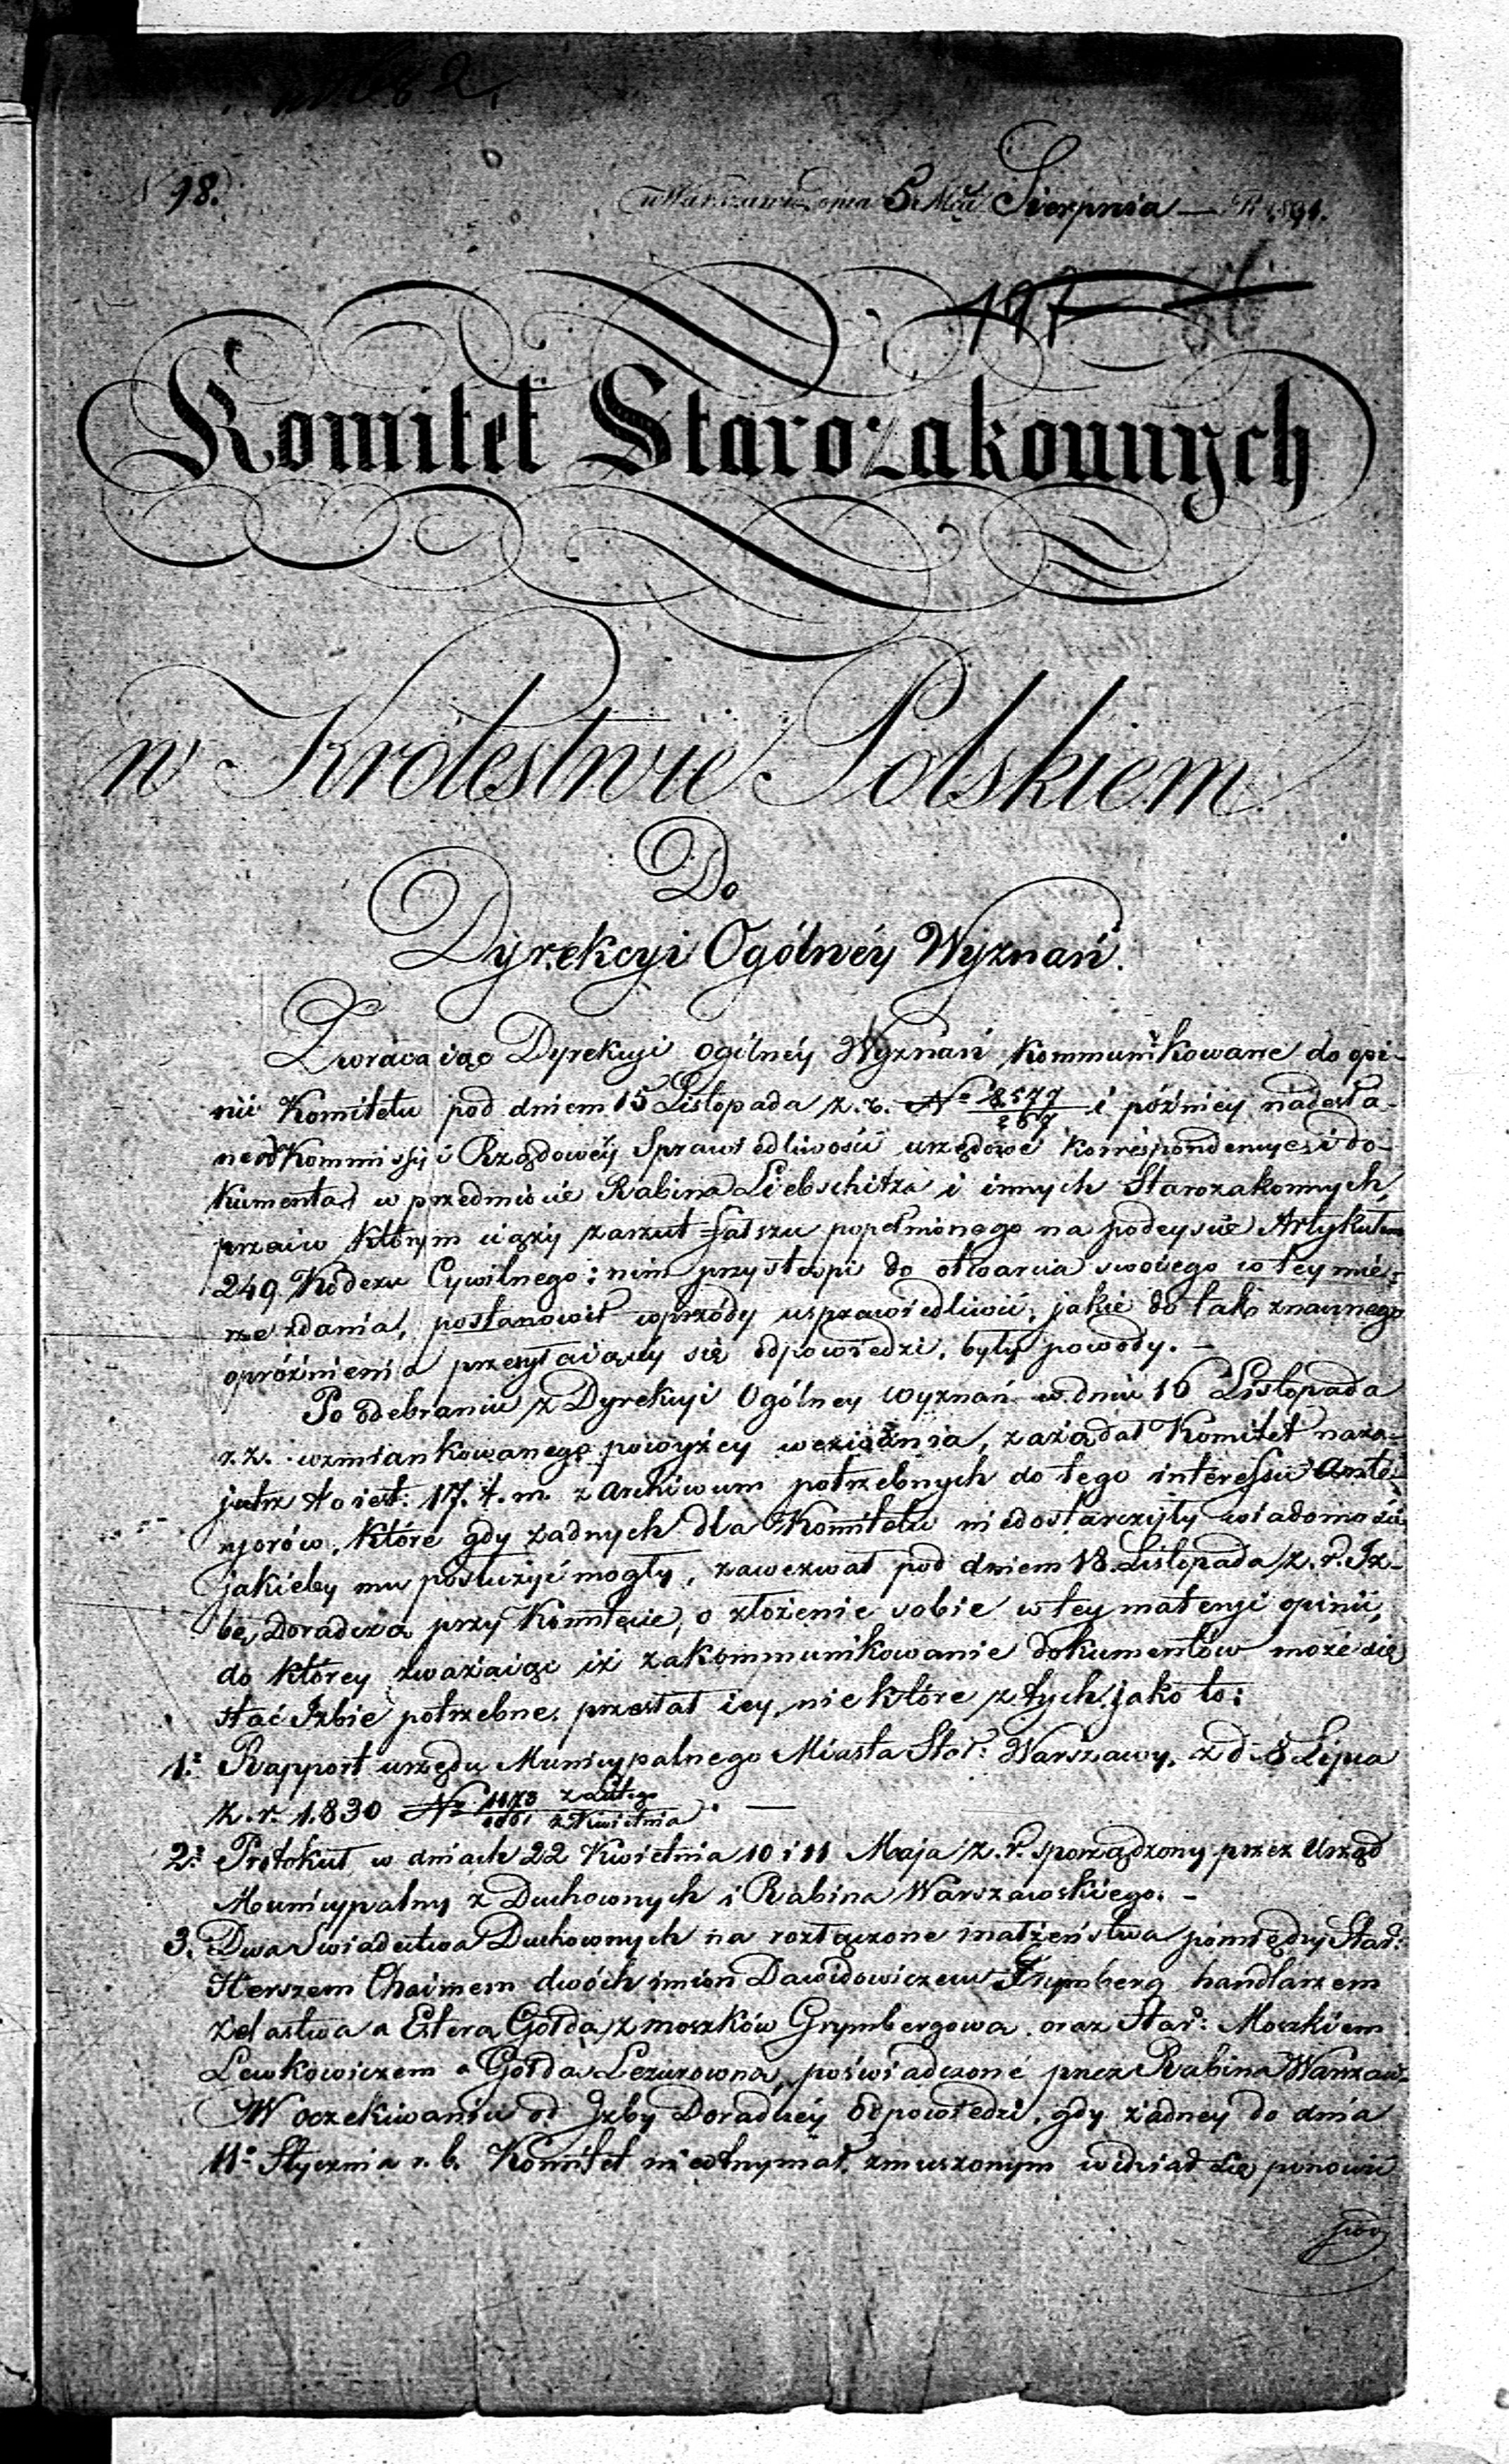 N 98.
w Warszawie dnia 5. Mca Sierpnia — R 1831.
197
Komitet Starozakonnych
w Królestwie Polskiem
Do
Dyrekcyi Ogólnéy Wyznań.
Zwracaiąc Dyrekcyi ogólnéy Wyznań kommunikowane do opi-
nii Komitetu pod dniem 15 Listopada z. r. No 8577/267 i późniey nadesła-
ne od Kommissyi Rządowéy Sprawiedliwości urzędowe korrespondencye i do-
kumenta w przedmiocie Rabina Liebschitza i innych Starozakonnych,
przeciw którym ciąży zarzut fałszu popełnionego na podeyście Artykułem
249 Kodexu Cywilnego; nim przystąpi do otwarcia swoiego w tey mie-
rze zdania, postanowił wprzódy usprawiedliwić, jakie do tak znacznego
opóźnienia przesyłaiącey się odpowiedzi, były powody. —
Po odebraniu z Dyrekcyi Ogólney wyznań w dniu 16 Listopada
r. z. wzmiankowanego powyżey wezwania, zażądał Komitet naza-
jutrz to iest: 17. t. m. z archiwum potrzebnych do tego interessu Ante-
ryorów, które gdy żadnych dla Komitetu niedostarczyły wiadomości
jakieby mu posłużyć mogły, zawezwał pod dniem 18. Listopada z. r. Iz-
bę Doradczą przy Komitecie, o złożenie sobie w tey materyi opinii,
do którey zważaiąc iż zakommunikowanie dokumentów może się
stać Izbie potrzebne, przesłał iey niektóre z tych jako to:
1: Rapport urzędu Municypalnego Miasta Stoł: Warszawy, z d. 8 Lipca
z. r. 1830 No 1173 z Lutego / z Kwietnia. —
2: Protokuł w dniach 22 Kwietnia 10 i 11 Maja z. r. sporządzony przez Urząd
Municypalny z Duchownych i Rabina Warszawskiego. —
3. Dwa Swiadectwa Duchownych na rozłączone małżeństwa pomiędzy Star:
Herszem Chaimem dwóch imion Dawidowiczem Grymberg handlarzem
żelastwa a Esterą Gołdą z moszków Grymbergową, oraz Star: Moszkiem
Lewkowiczem a Gołdą Lezurowną, poświadczone przez Rabina Warszaw.
W oczekiwaniu od Izby Doradczéy odpowiedzi, gdy żadney do dnia
11o Stycznia r. b. Komitet nieotrzymał, zmuszonym widział się ponowić